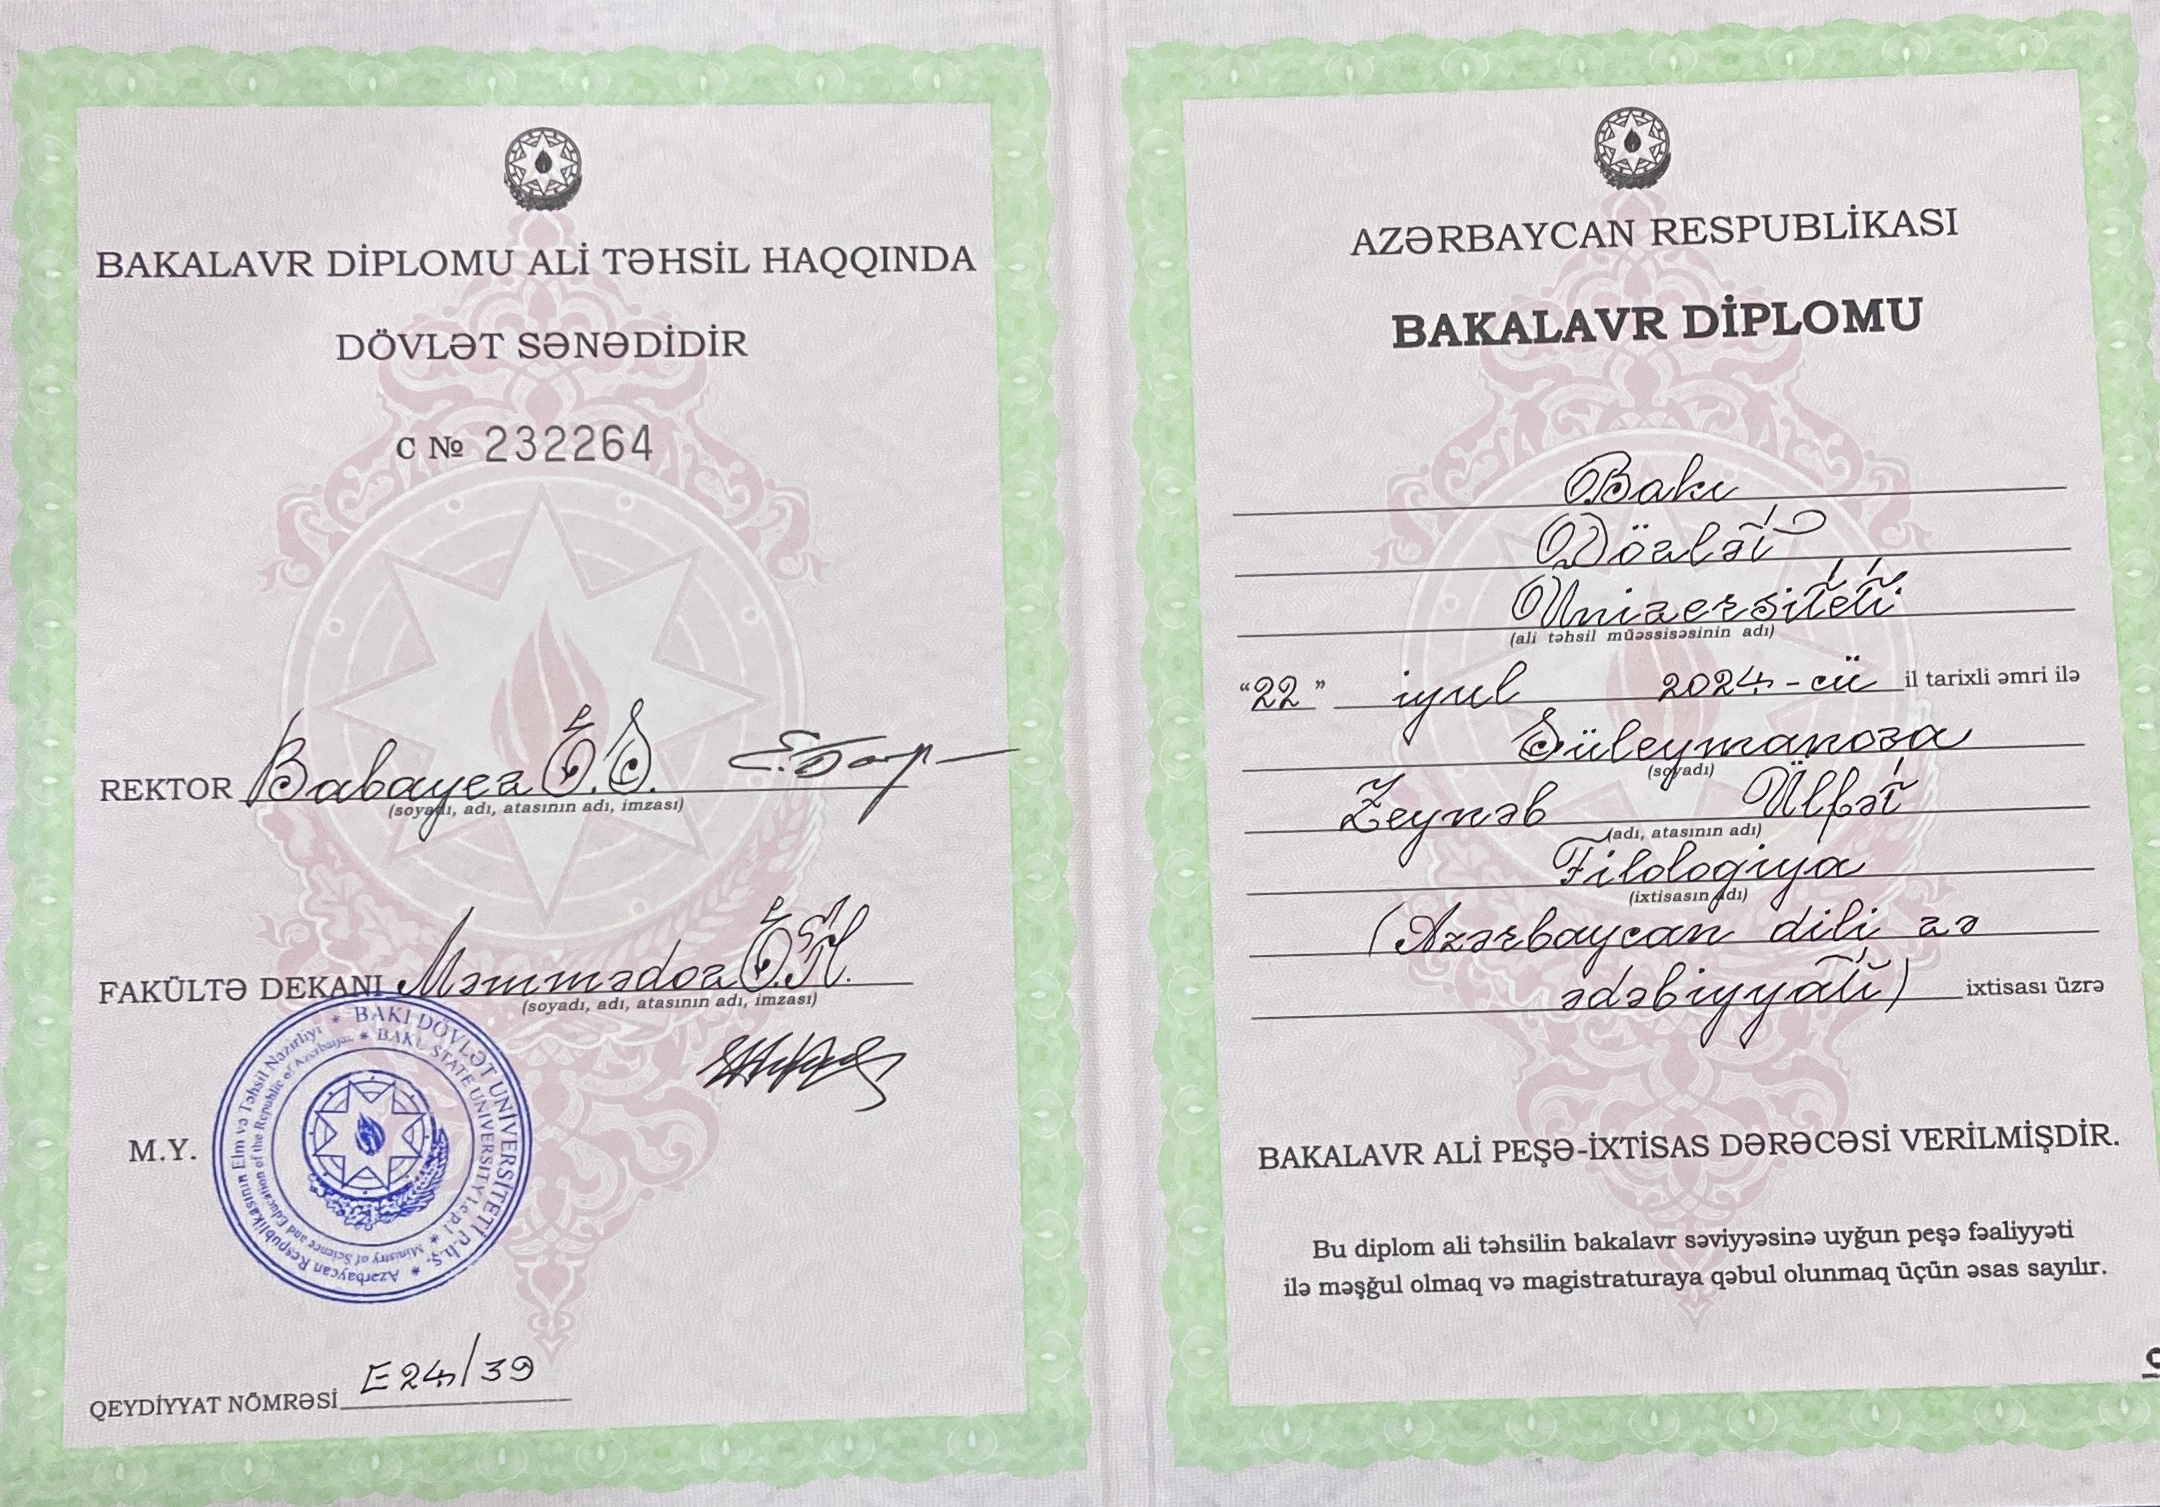 BAKALAVR DİPLOMU ALİ TƏHSİL HAQQINDA
DÖVLƏT SƏNƏDİDİR
C № 232264
REKTOR Babayev E.S.
(soyadı, adı, atasının adı, imzası)
FAKÜLTƏ DEKANI Məmmədov E.
(soyadı, adı, atasının adı, imzası)
M.Y.
BAKI DÖVLƏT UNİVERSİTETİ p.h.ş. * Azərbaycan Respublikasının Elm və Təhsil Nazirliyi *
BAKU STATE UNIVERSITY l.e.p.l. * Ministry of Science and Education of the Republic of Azerbaijan *
QEYDİYYAT NÖMRƏSİ E24/39
AZƏRBAYCAN RESPUBLİKASI
BAKALAVR DİPLOMU
Bakı
Dövlət
Universiteti
(ali təhsil müəssisəsinin adı)
“22” iyul 2024-cü il tarixli əmri ilə
Süleymanova
(soyadı)
Zeynəb Ülfət
(adı, atasının adı)
Filologiya
(ixtisasın adı)
(Azərbaycan dili və
ədəbiyyatı) ixtisası üzrə
BAKALAVR ALİ PEŞƏ-İXTİSAS DƏRƏCƏSİ VERİLMİŞDİR.
Bu diplom ali təhsilin bakalavr səviyyəsinə uyğun peşə fəaliyyəti
ilə məşğul olmaq və magistraturaya qəbul olunmaq üçün əsas sayılır.